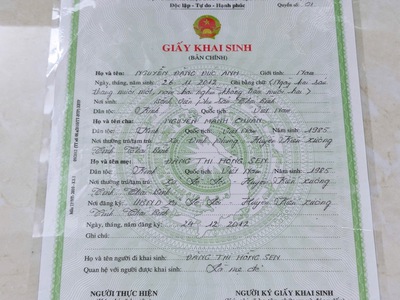 Độc lập - Tự do - Hạnh phúc
Quyển số: 01
GIẤY KHAI SINH
(BẢN CHÍNH)
Họ và tên: NGUYỄN ĐẶNG ĐỨC ANH Giới tính: Nam
Ngày, tháng, năm sinh: 26-11-2012 (Ngày hai sáu
tháng mười một, năm hai nghìn không trăm mười hai)
Nơi sinh: Bệnh viện phụ sản Thái Bình
Dân tộc: Kinh Quốc tịch: Việt Nam
Họ và tên cha: NGUYỄN MẠNH CHUẨN
Dân tộc: Kinh Quốc tịch: Việt Nam Năm sinh: 1985
Nơi thường trú/tạm trú: Xã Huyện Kiến Xương
Tỉnh Thái Bình
Họ và tên mẹ: ĐẶNG THỊ HỒNG SEN
Dân tộc: Kinh Quốc tịch: Việt Nam Năm sinh: 1985
Nơi thường trú/tạm trú: Xã Huyện Kiến Xương
Tỉnh Thái Bình
Nơi đăng ký: UBND Xã Huyện Kiến Xương
Tỉnh Thái Bình
Ngày, tháng, năm đăng ký: 24-12-2012
Ghi chú:
Họ và tên người đi khai sinh: ĐẶNG THỊ HỒNG SEN
Quan hệ với người được khai sinh: Là mẹ đẻ
NGƯỜI THỰC HIỆN
NGƯỜI KÝ GIẤY KHAI SINH